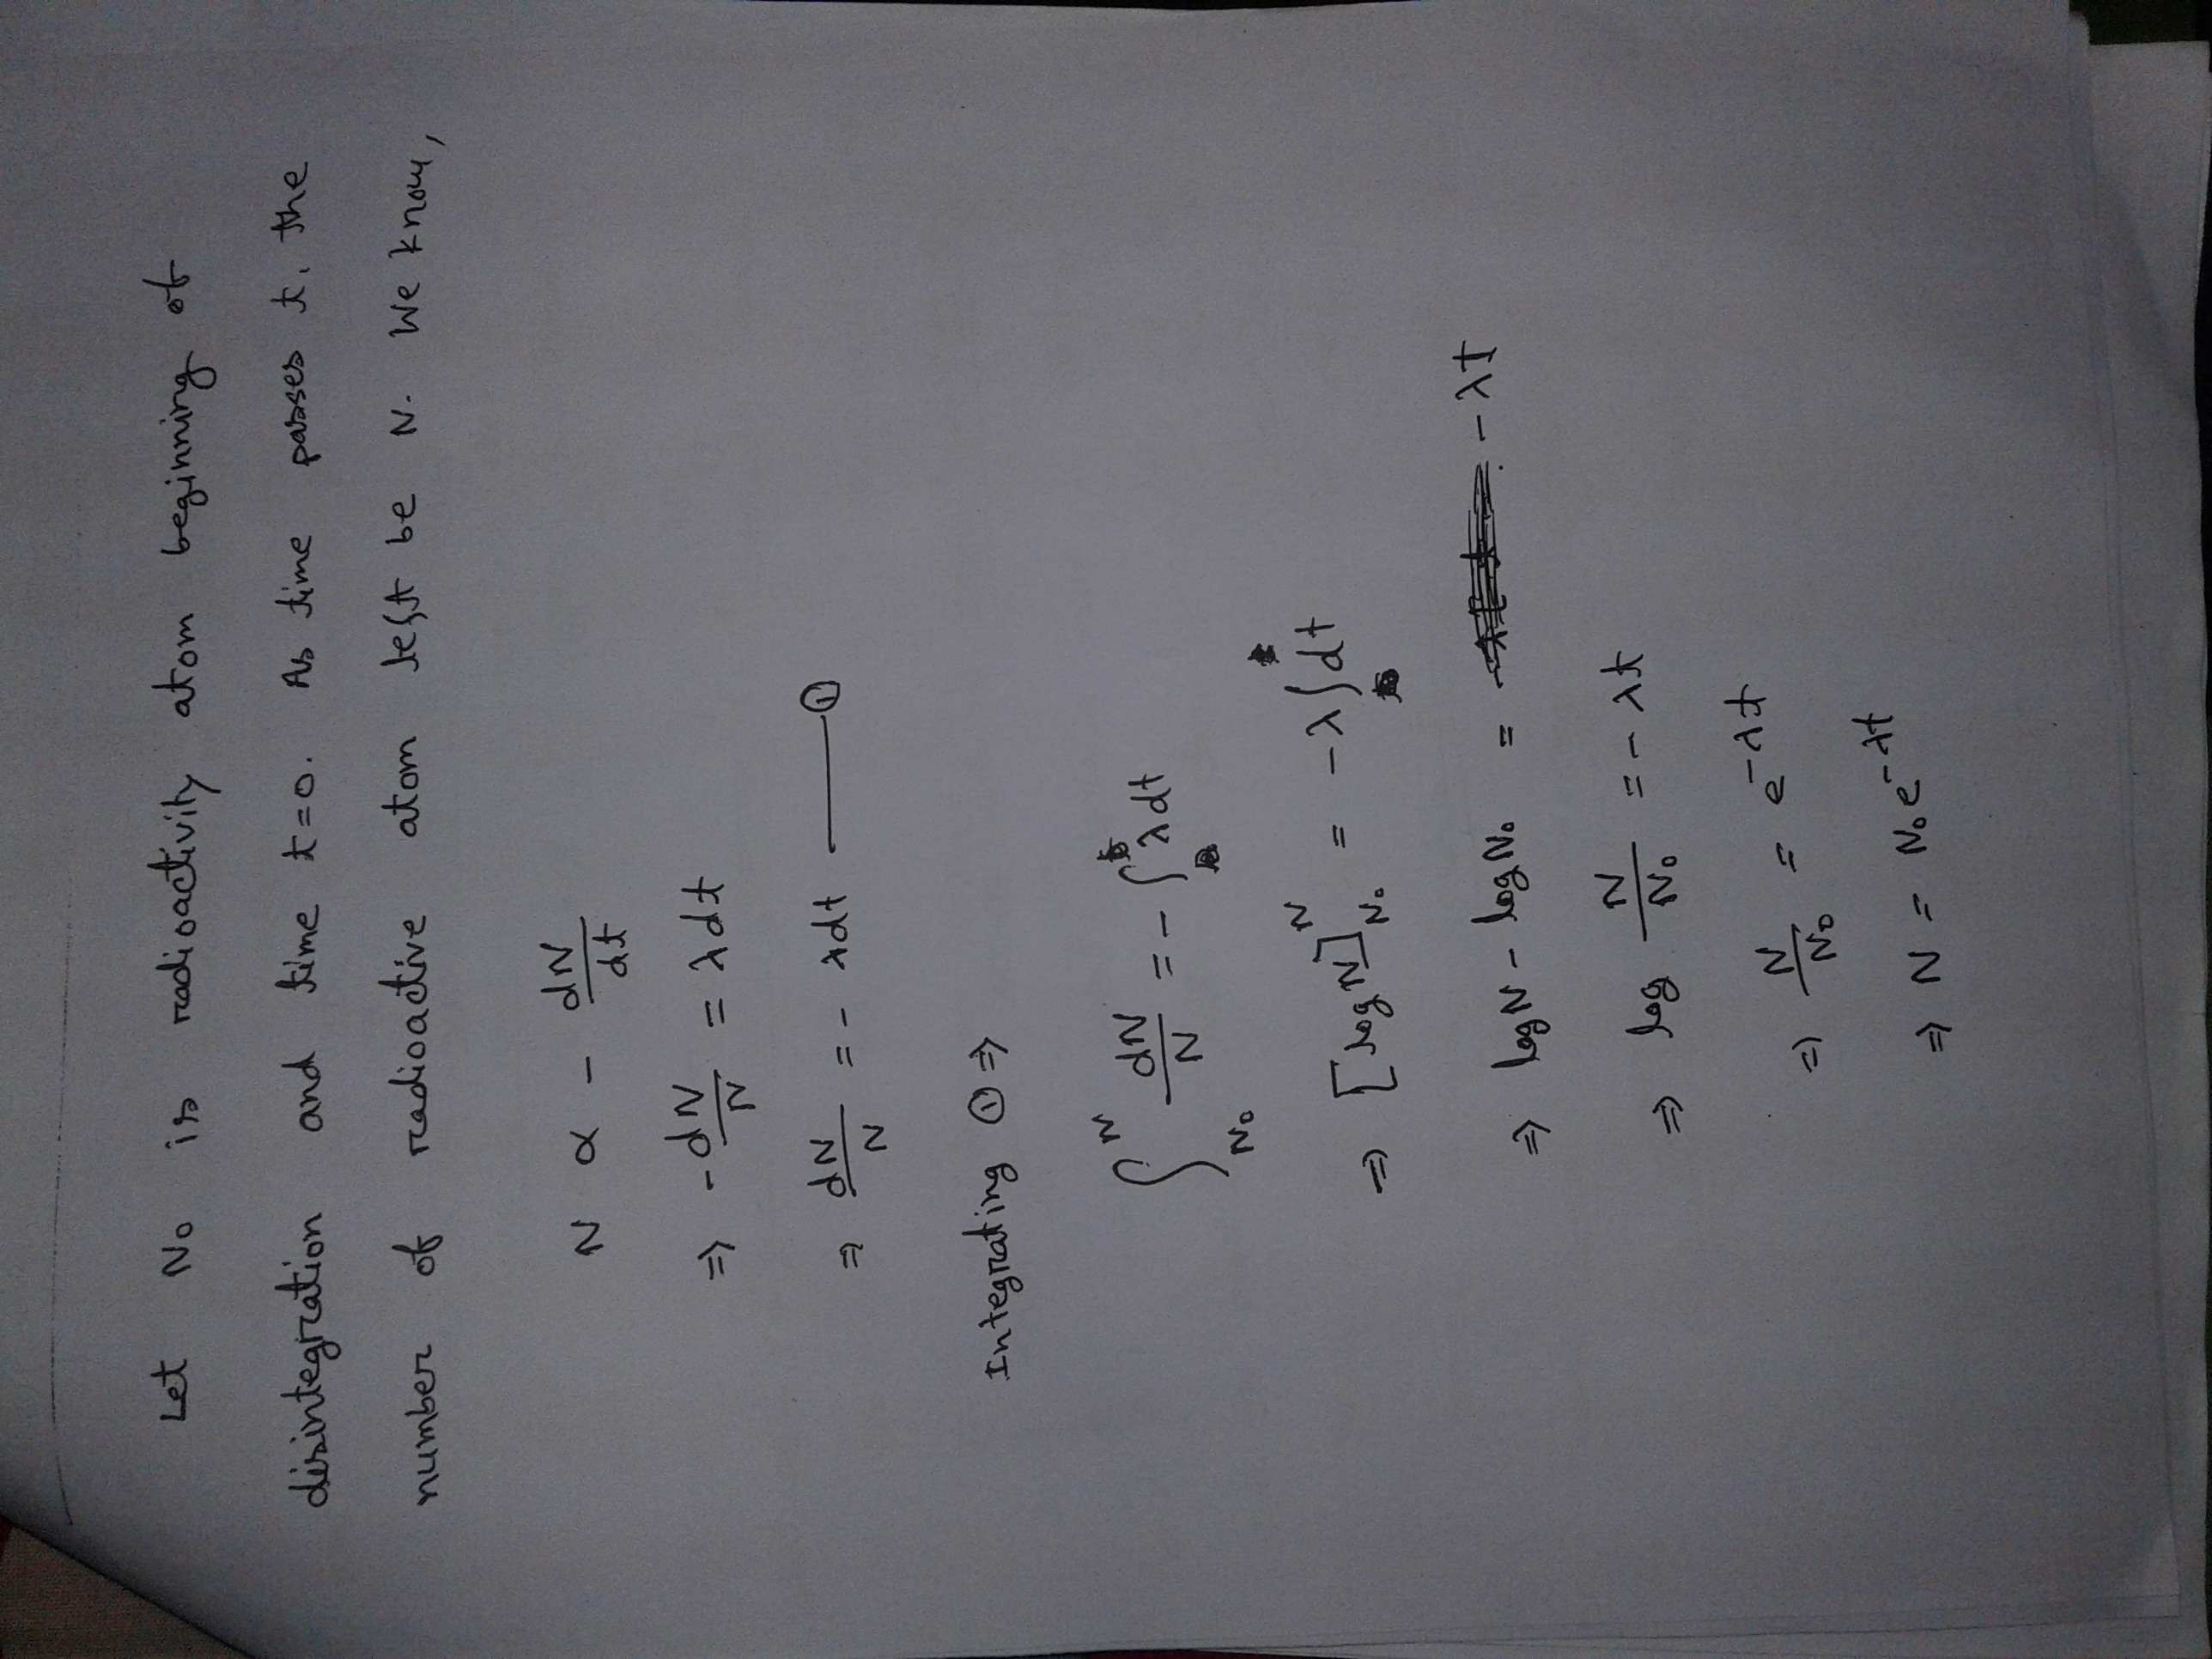 Let N₀ is radioactivity atom beginning of
disintegration and time t=0. As time passes t, the
number of radioactive atom left be N. We know,
N ∝ - dN/dt
⇒ -dN/N = λdt
⇒ dN/N = - λdt ——— ①
Integrating ① ⇒
∫_{N₀}^{N} dN/N = - ∫ λdt
⇒ [log N]_{N₀}^{N} = -λ∫dt
⇒ log N - log N₀ = -λt
⇒ log N/N₀ = - λt
⇒ N/N₀ = e^{-λt}
⇒ N = N₀e^{-λt}